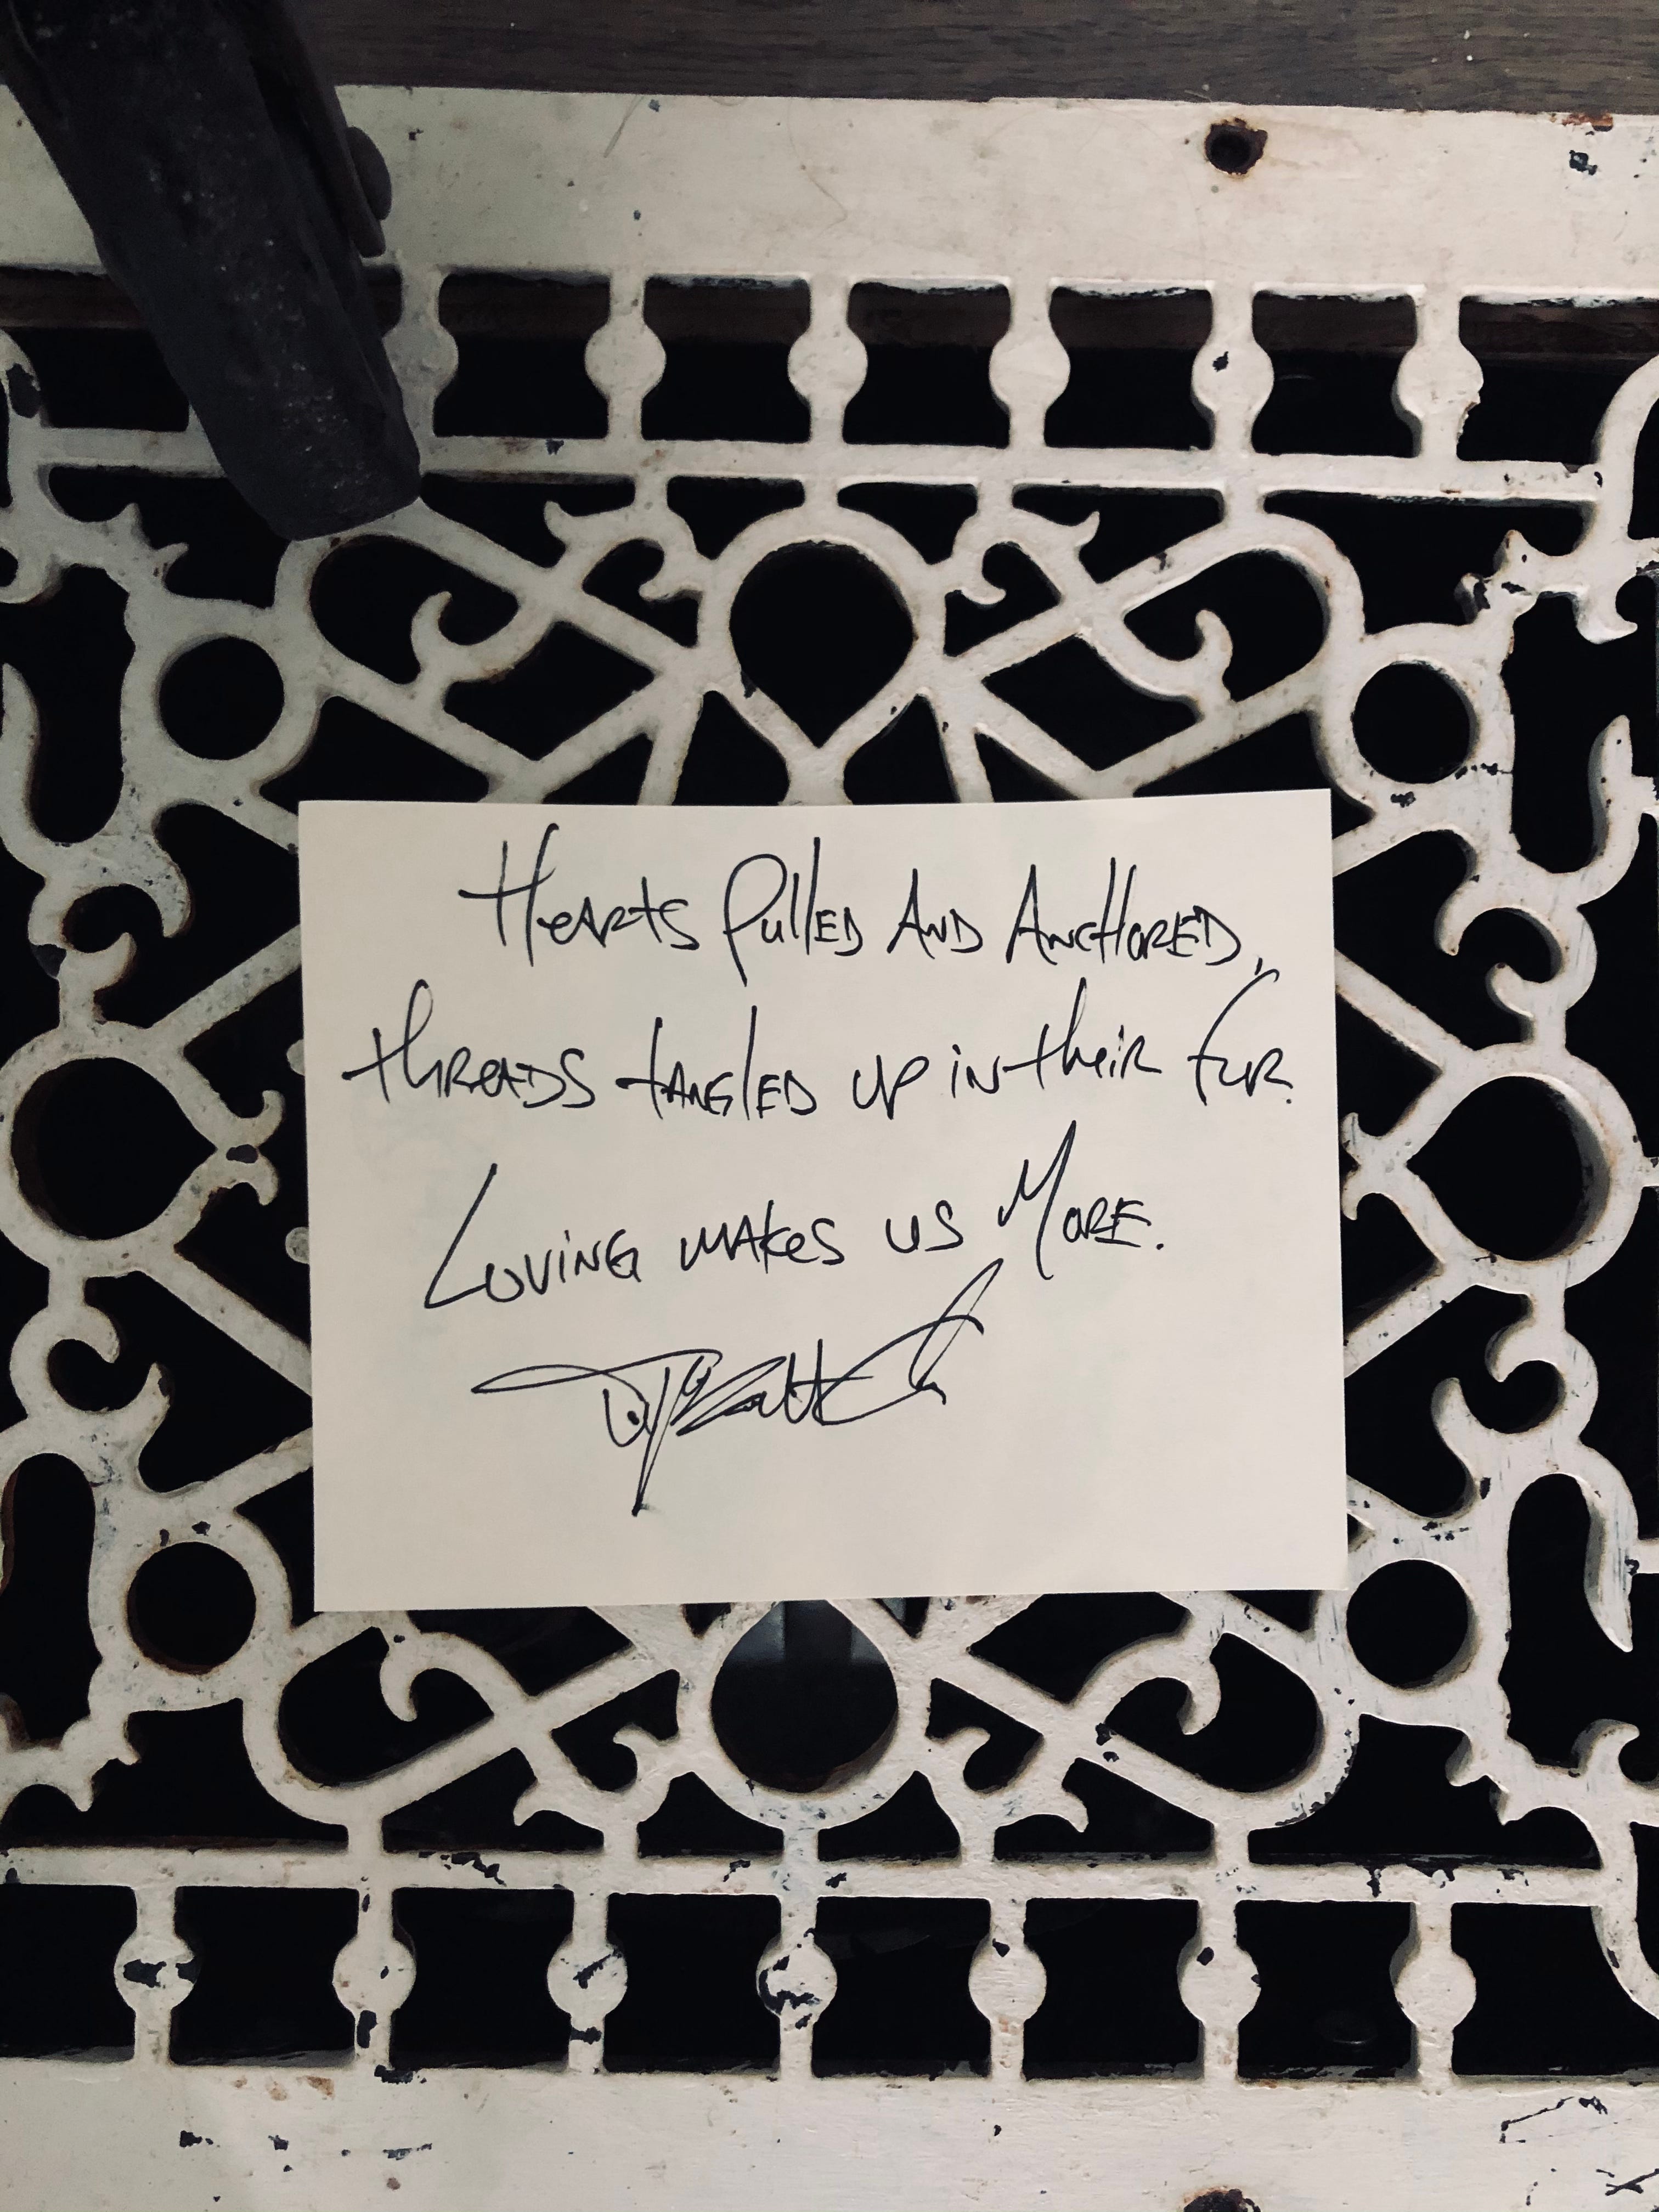 Hearts Pulled And Anchored,
threads tangled up in their fur.
Loving makes us More.